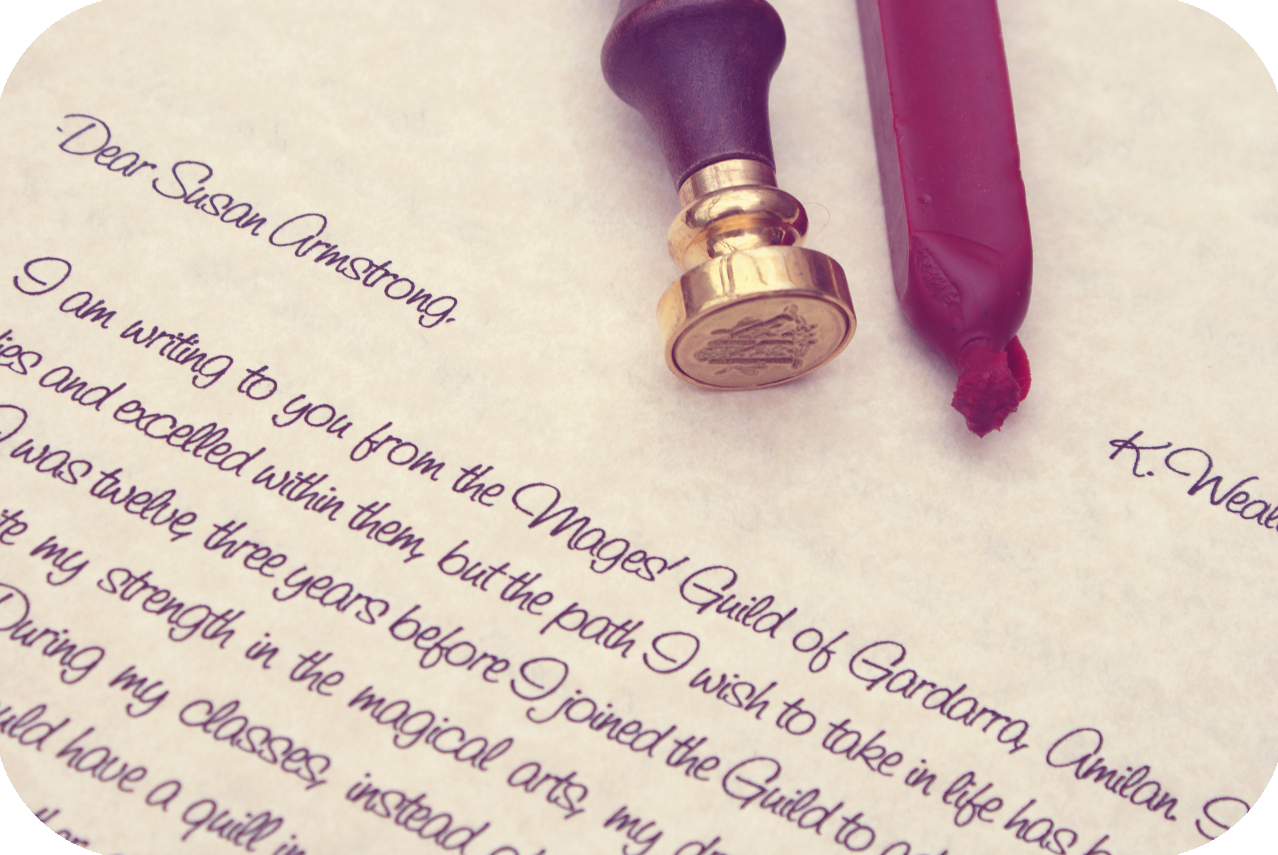 -Dear Susan Armstrong,
K. Weal
I am writing to you from the Mages' Guild of Gardarra, Amilan. S
ies and excelled within them, but the path I wish to take in life has b
I was twelve, three years before I joined the Guild to
te my strength in the magical arts, my dr
During my classes, instead
uld have a quill in